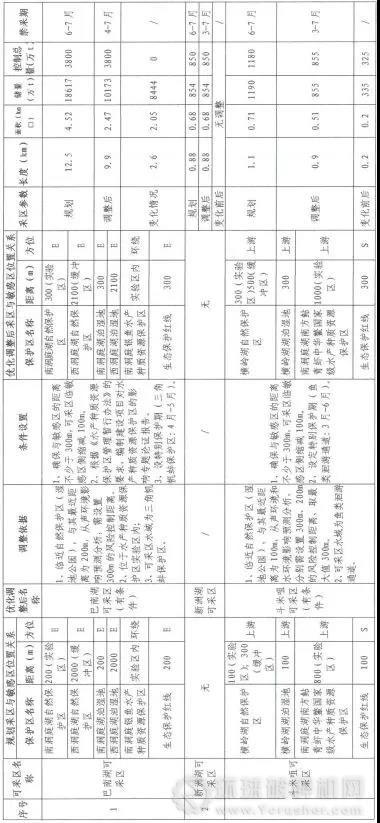 序号
可采区名称
规划采区与敏感区位置关系
保护区名称
距离(m)
方位
优化调整后名称
调整依据
条件设置
优化调整后采区与敏感区位置关系
保护区名称
距离(m)
方位
采区参数
长度(km)
面积(km
储量(万t)
控制总量(万t)
禁采期
1
巴南湖可采区
南洞庭湖自然保护区
200(实验区)
E
西洞庭湖自然保护区
2000(缓冲区)
E
南洞庭湖泊湿地
200
E
西洞庭湖泊湿地
2000
E
南洞庭银鱼水产种质资源保护区
实验区内
环绕
生态保护红线
200
E
巴南湖可采区(有条件)
1、临近自然保护区(湿地公园),与其最近距离为200m,从声环境影响预测分析,需设置300m的风险控制距离。
2、位于水产种质资源保护区实验区内;
3、可采区水域为三角帆蚌保护区。
1、确保与敏感区的距离不少于300m,可采区临敏感区侧缩减100m。
2、根据《水产种质资源保护区管理暂行办法》的要求,编制建设项目对水产种质资源保护区的影响专题论证报告。
3、设特别保护期(三角帆蚌保护区:4月-5月)。
南洞庭湖自然保护区
300(实验区)
E
西洞庭湖自然保护区
2100(缓冲区)
E
南洞庭湖泊湿地
300
E
西洞庭湖泊湿地
2100
E
南洞庭银鱼水产种质资源保护区
实验区内
环绕
生态保护红线
300
E
规划
12.5
4.52
18617
3800
6-7月
调整后
9.9
2.47
10173
3800
4-7月
变化情况
2.6
2.05
8444
0
/
2
新洲湖可采区
无
新洲湖可采区
/
/
无
规划
0.88
0.68
854
850
6-7月
调整后
0.88
0.68
854
850
3-7月
变化前后
无调整
横岭湖自然保护区
100(实验区);300(缓冲区)
上游
横岭湖湖泊湿地
100
上游
南洞庭湖南方鲇青虾中华鳖国家级水产种质资源保护区
800(实验区)
上游
生态保护红线
100
S
斗米咀可采区(有条件)
1、临近自然保护区(湿地公园),与其最近距离为100m,从声环境和水环境影响预测分析,分别需设置300m、200m的风险控制距离,取最大值300m。
2、可采区水域为鱼类洄游通道。
1、确保与敏感区的距离不少于300m,可采区临敏感区侧缩减100m。
2、设定特别保护期(鱼类洄游通道:3月-6月)。
横岭湖自然保护区
300(实验区)500(缓冲区)
上游
横岭湖湖泊湿地
300
上游
南洞庭湖南方鲇青虾中华鳖国家级水产种质资源保护区
1000(实验区)
上游
生态保护红线
300
S
规划
1.1
0.71
1190
1180
6-7月
调整后
0.9
0.51
855
855
3-7月
变化前后
0.2
0.2
335
325
/
www.Ycrusher.com